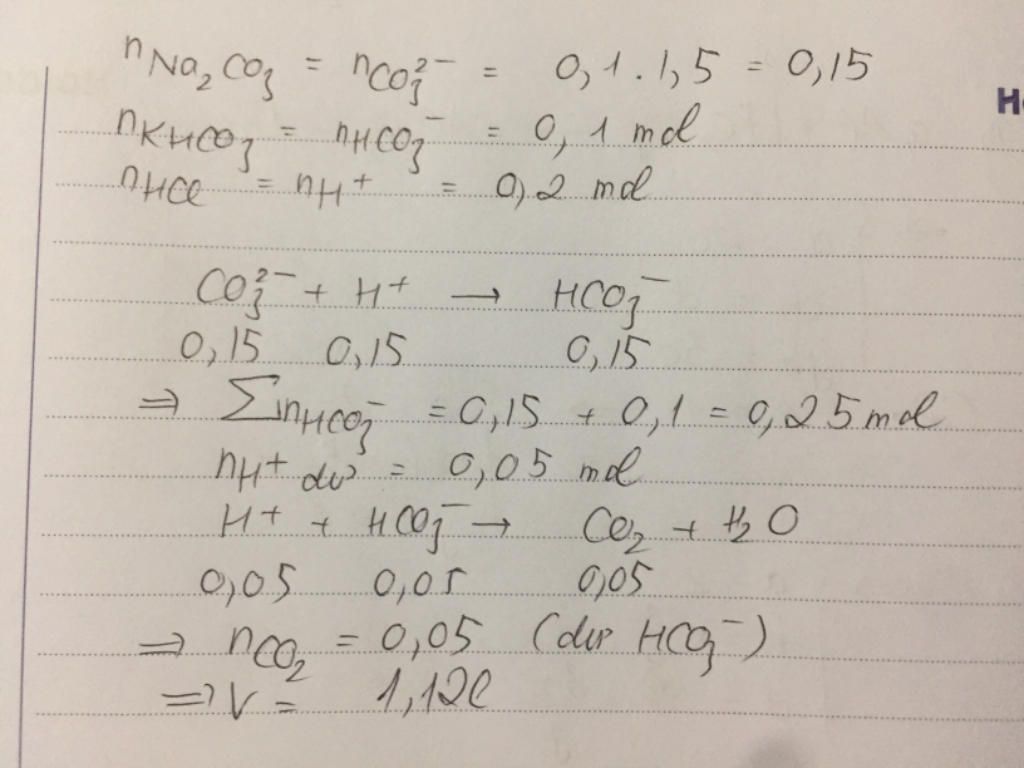 nNa₂CO₃ = nCO₃²⁻ = 0,1 . 1,5 = 0,15
H
nKHCO₃ = nHCO₃⁻ = 0,1 mol
nHCl = nH⁺ = 0,2 mol
CO₃²⁻ + H⁺ → HCO₃⁻
0,15 0,15 0,15
⇒ ∑nHCO₃⁻ = 0,15 + 0,1 = 0,25 mol
nH⁺ dư = 0,05 mol
H⁺ + HCO₃⁻ → CO₂ + H₂O
0,05 0,05 0,05
⇒ nCO₂ = 0,05 (dư HCO₃⁻)
⇒ V = 1,12l